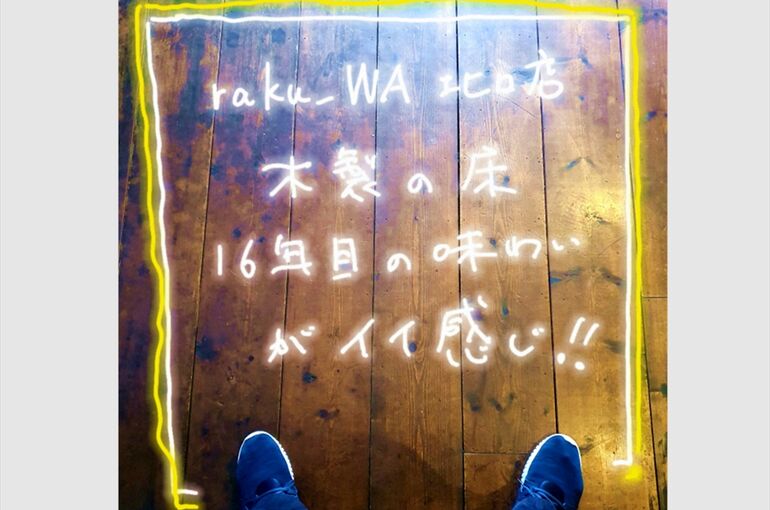 raku_WA 北口店
木製の床
16年目の味わい
がイイ感じ!!